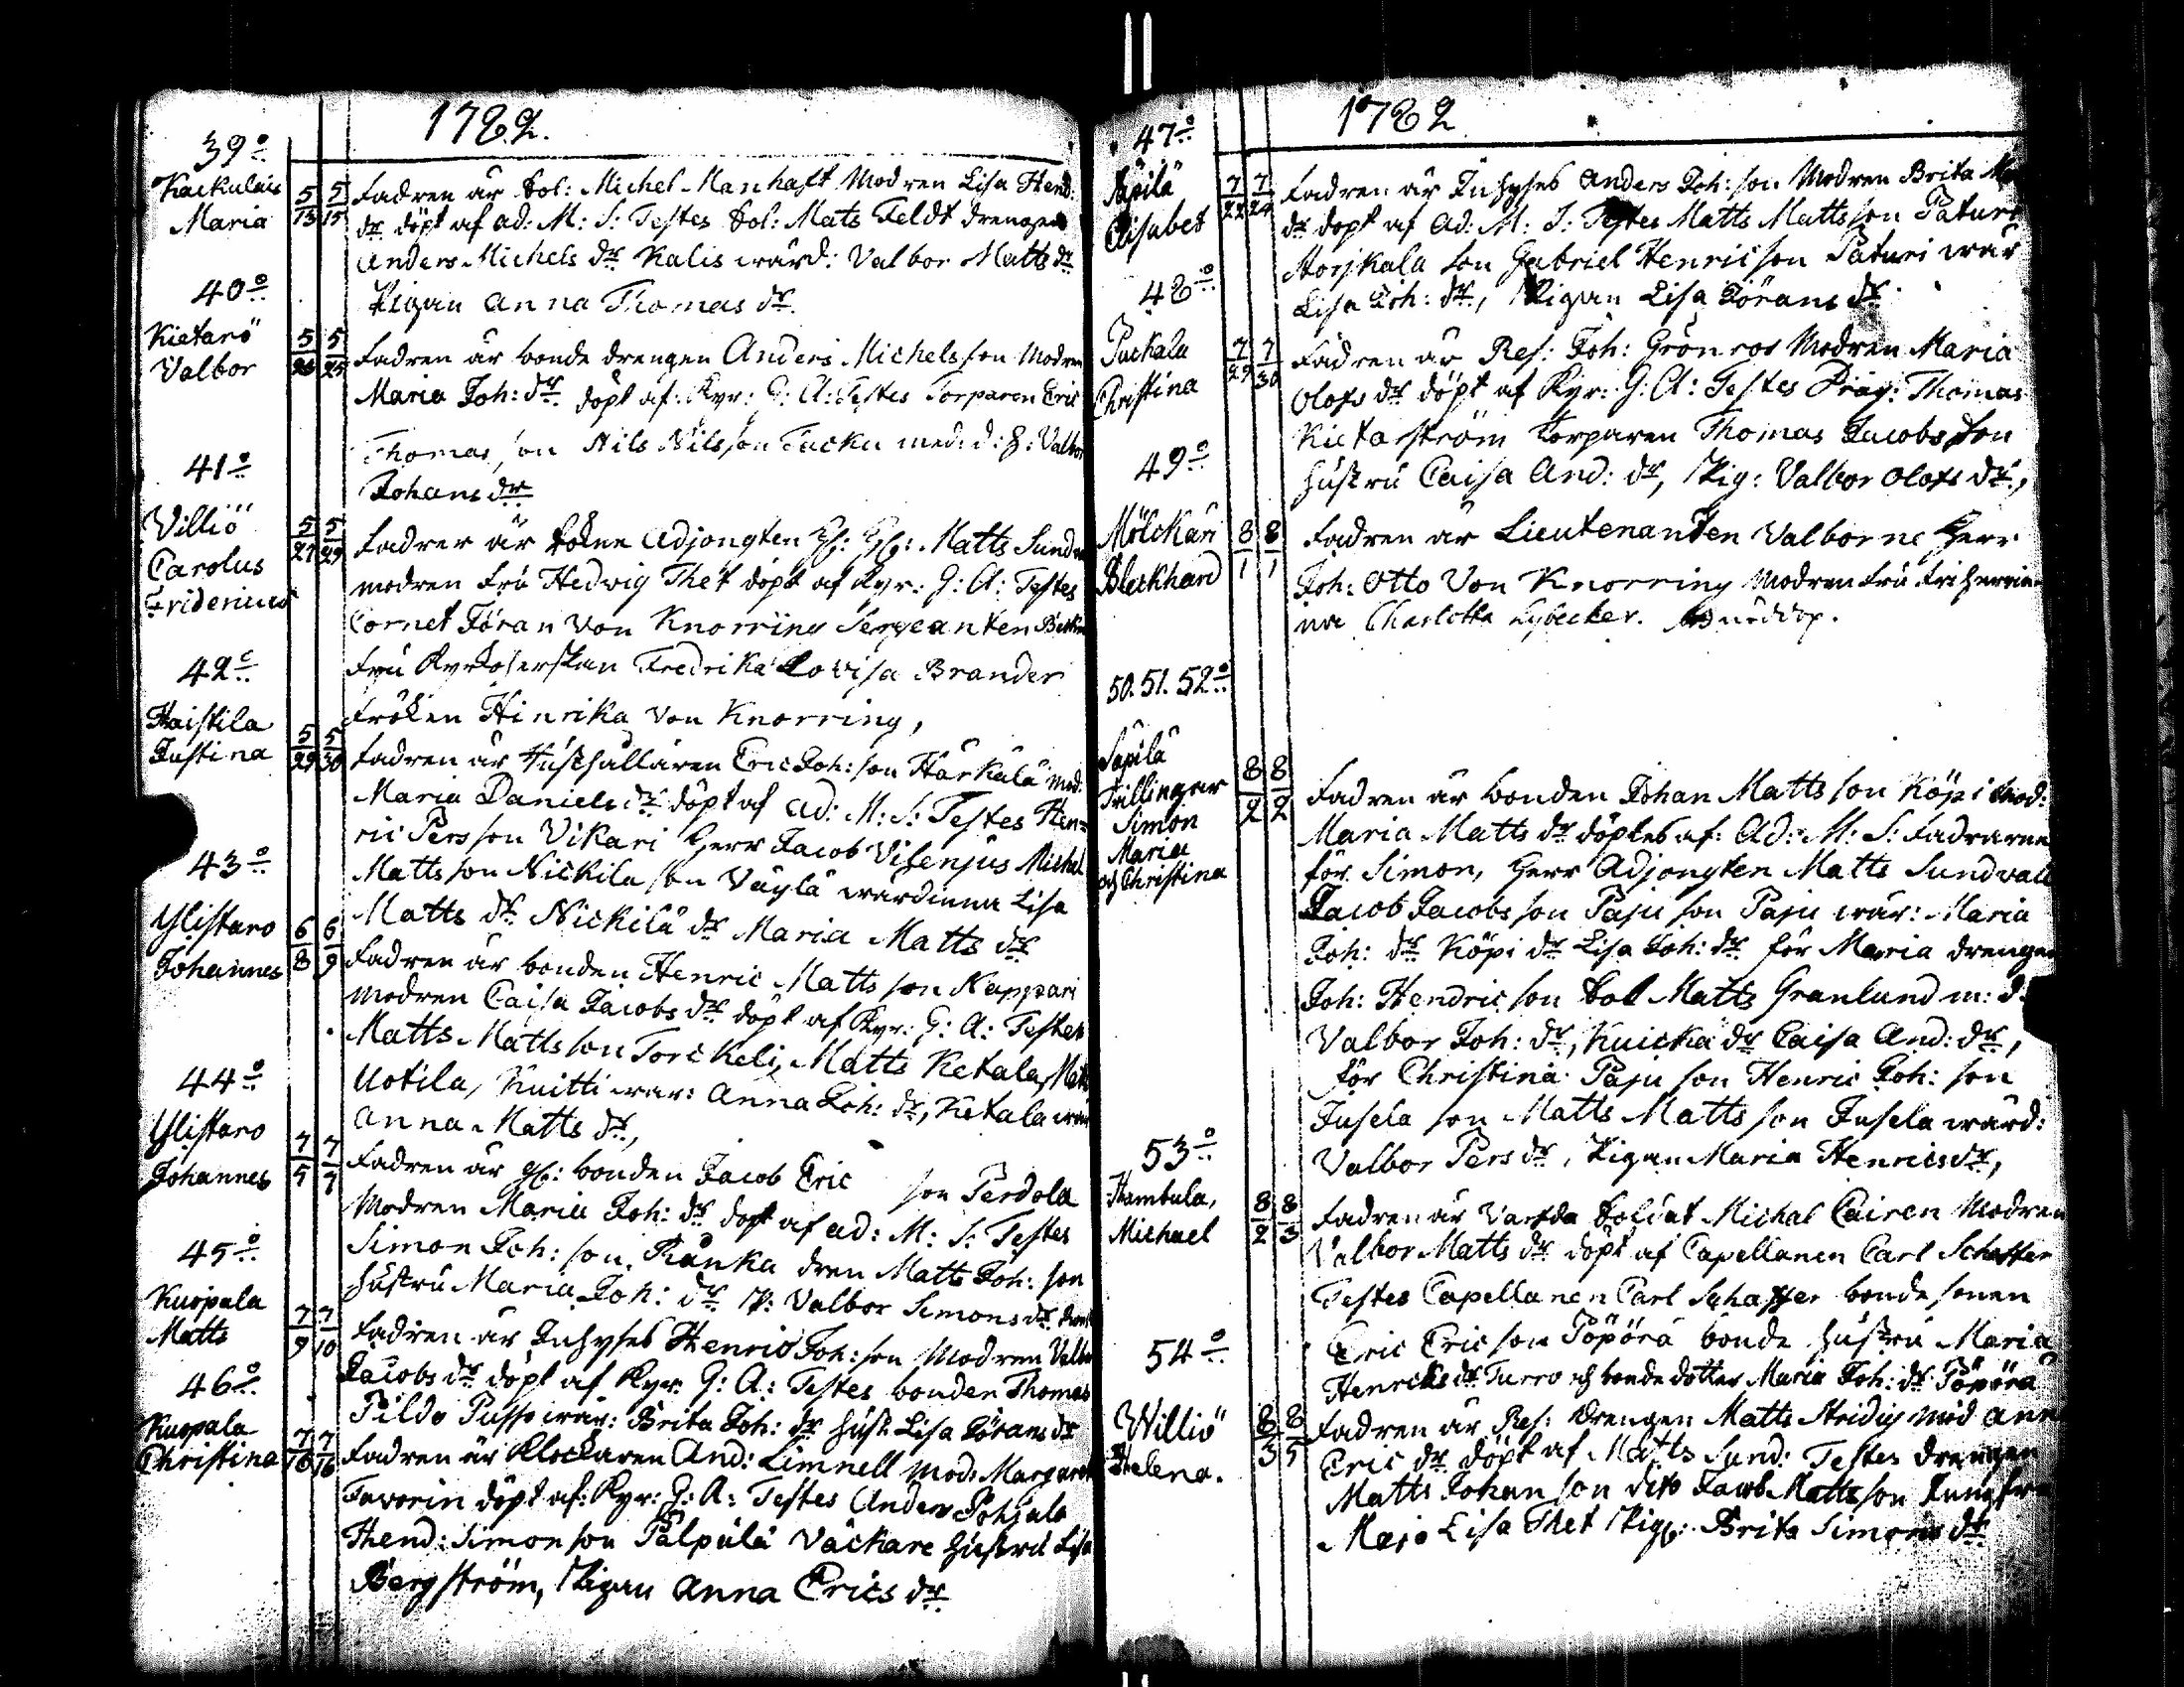 1782.
39o
Kackulais
Maria
5/13 5/15
Fadren är Sol: Michel Manhaft Modren Lisa Hend:
dr döpt af ad: M: S: Testes Sol: Mats Feldt drengen
Anders Michels dr Kalis wärd: Valbor Matts dr
Pigan Anna Thomas dr
40o
Kietarö
Valbor
5 5/25
Fadren är bonde drengen Anders Michelsson Modren
Maria Joh: dr döpt af: Kyr: G: A: Testes Torparen Eric
Thomas son Nils Nilsson Tacku med: d: h: Valbor
Johans dr
41o
Villiö
Carolus
Fridericus
5/27 5/29
Fadren är Adjongten Matts Sund
modren Fru Hedvig Thet döpt af Kyr: G: A: Testes
Cornet Jöran Von Knorring Sergeanten
Fru Kyrkoherskan Fredrika Lovisa Brander
Fröken Hinrika Von Knorring,
42o
Haistila
Justina
5/29 5/30
Fadren är Rusthållaren Eric Joh: son Härkälä Mod:
Maria Daniels dr döpt af Ad: M: S: Testes Hen=
ric Persson Vikari Herr Jacob Visenjus Michel
Matts son Nickila son Väylä wärdinna Lisa
Matts dr Nickilä dr Maria Matts dr
43o
Ylistaro
Johannes
6/8 6/9
Fadren är bonden Henric Matts son Kappari
modren Caisa Jacobs dr döpt af Kyr: G: A: Testes
Matts Matts son Torckeli, Matts Ketala, Matts
Uotila, Knitti wär: Anna Joh: dr, Ketala
Anna Matts dr,
44o
Ylistaro
Johannes
7/5 7/7
Fadren är bonden Jacob Eric son Perdola
Modren Maria Joh: dr dopt af ad: M: S: Testes
Simon Joh: son Ranka dren Matts Joh: son
hustru Maria Joh: dr P: Valbor Simons dr
45o
Kuopala
Matts
7/9 7/10
Fadren är Inhyses Henric Joh: son Modren Valbor
Jacobs dr döpt af Kyr: G: A: Testes bonden Thomas
Pildo Pusso wär: Brita Joh: dr hust Lisa Jörans dr
46o
Kuopala
Christina
7/16 7/16
Fadren är Klockaren And: Limnell Mod: Margaret
Favorin döpt af: Kyr: G: A: Testes Anders Pohjala
Hend: Simon son Palpälä Väckare hustru Lisa
Bergström, Pigan Anna Erics dr
1782
47o
Säpilä
Elisabet
7/22 7/24
Fadren är Inhyses Anders Joh: son Modren Brita
dr dopt af Ad: M: S: Testes Matts Matts son Paturi
Storjkala son Gabriel Henricson Paturi wär
Lisa Joh: dr, Pigan Lisa Görans dr
48o
Puckala
Christina
7/29 7/30
Fadren är Res: Joh: Grönroos Modren Maria
Olofs dr döpt af Kyr: G: A: Testes Drag: Thomas
Kietarström torparen Thomas Jacobs son
hustru Caisa And: dr, Pig: Valbor Olofs dr,
49o
Mölckäri
Bleckhard
8/1 8/1
Fadren är Lieutenanten Valborne Herr
Joh: Otto Von Knorring Modren Fru Friherrin=
na Charlotta Lybecker. nöddop.
50. 51. 52o
Säpilä
Trillingar
Simon
Maria
och Christina
8/2 8/2
Fadren är bonden Johan Matts son Köpi Mod:
Maria Matts dr döptes af: Ad: M: S: Fadrarne
för Simon, Herr Adjongten Matts Sundvall
Jacob Jacobs son Paju son Paju wär: Maria
Joh: dr Köpi dr Lisa Joh: dr för Maria drengen
Joh: Hendric son Sol Matts Granlund m: d:
Valbor Joh: dr, Knicka dr Caisa And: dr,
för Christina Paju son Henric Joh: son
Jusela son Matts Matts son Jusela wärd:
Valbor Pers dr, Pigan Maria Henrics dr,
53o
Hambula,
Michael
8/2 8/3
Fadren är Soldat Michel Cairen Modren
Valbor Matts dr döpt af Capellanen Carl Schaffer
Testes Capellanen Carl Schaffer bonde sonen
Eric Eric son Pöpörä bonde hustru Maria
Henrics dr Turro och bonde dotter Maria Joh: dr Pöpörä
54o
Williö
Helena.
8/3 8/5
Fadren är Res: drengen Matts Stridig Mod Ann
Eric dr döpt af Matts Sund: Testes drengen
Matts Johan son dito Jacob Matts son Jungfru
Maja Lisa Thet Pig: Brita Simons dr